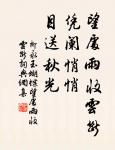 望處雨收雲斷
凭闌悄悄
目送秋光
柳永玉蝴蝶望處雨收
雲斷詞典網集